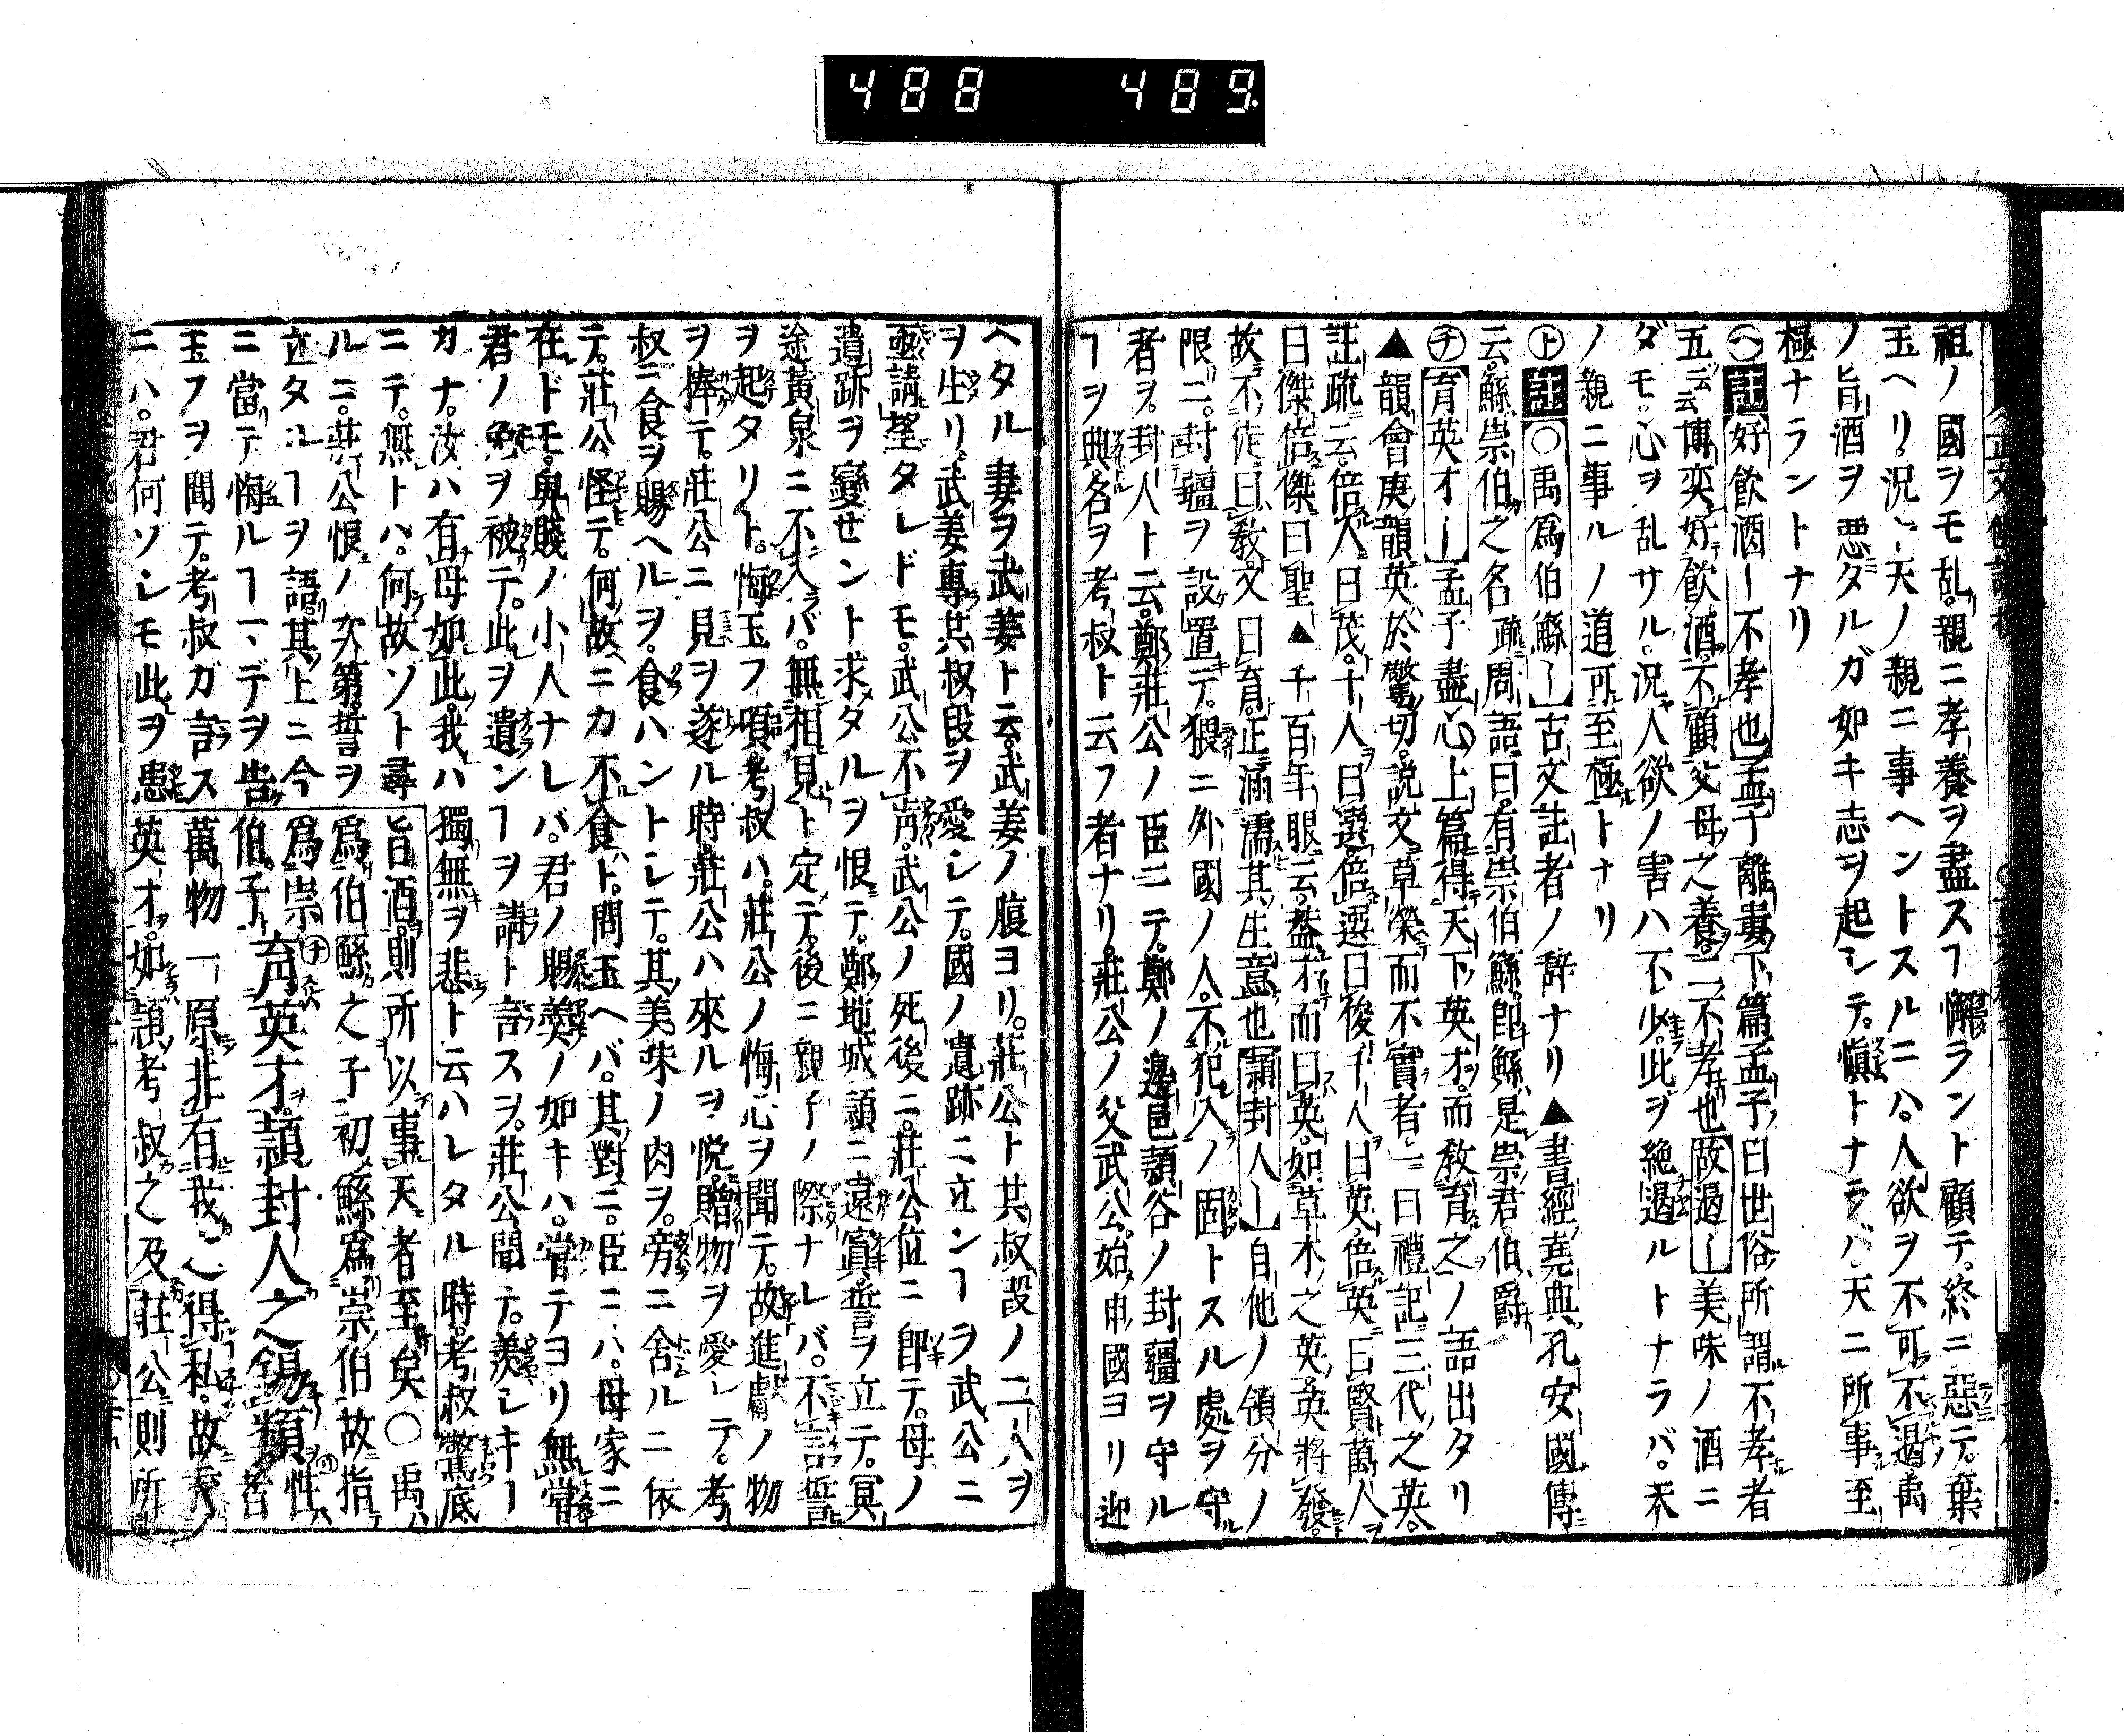 488 489
祖ノ國ヲモ乱。親ニ孝養ヲ盡スヿ懈ラント顧テ。終ニ惡テ。棄
玉ヘリ。況ヤ天ノ親ニ事ヘントスルニハ。人欲ヲ不可不遏。禹
ノ旨酒ヲ悪タルガ如キ志ヲ起シテ。愼トナラバ。天ニ所事至
極ナラントナリ
㋬註好飮酒ー不孝也孟子離婁下篇孟子曰世俗所謂不孝者
五云云博奕好飮酒。不顧父母之養。二不孝也故遏ー美味ノ酒ニ
ダモ。心ヲ乱サル。況人欲ノ害ハ不少。此ヲ絶遏ルトナラバ。天
ノ親ニ事ルノ道可至極トナリ
㋣註○禹爲伯鯀ー古文註者ノ辞ナリ▲書經堯典。孔安國傳
云。鯀崇伯之名疏周語曰。有崇伯鯀。即鯀是崇君。伯爵
㋠育英才ー孟子盡心上篇得天下英才。而教育之ノ語出タリ
▲韻會庚韻英於驚切。説文草榮而不實者一曰禮記三代之英。
註疏云。倍人曰茂。十人曰選。倍選曰俊千人曰英。倍英曰賢萬人
曰傑倍傑曰聖▲千百年眼云。蓋才而曰英。如草木之英。英將發。
故不徒曰教。又曰育。正涵濡其生意也頴封人ー自他ノ領分ノ
限ニ。封疆ヲ設置テ。猥ニ外國ノ人。不犯入ノ固トスル處ヲ守
者ヲ。封人ト云。鄭莊公ノ臣ニテ。鄭ノ邊邑頴谷ノ封疆ヲ守ル
ヿヲ典。名ヲ考叔ト云フ者ナリ。莊公ノ父武公。始申國ヨリ迎
ヘタル妻ヲ武姜ト云。武姜ノ腹ヨリ。莊公ト共叔段ノ二人ヲ
ヲ生リ。武姜專其叔段ヲ愛シテ。國ノ遺跡ニ立ンヿヲ武公ニ
亟請望タレドモ。武公不肯。武公ノ死後ニ。莊公位ニ即テ。母ノ
遺跡ヲ變ゼント求タルヲ恨テ。鄭地城頴ニ遠寘誓ヲ立テ。冥
途黄泉ニ不入バ。無相見ト定テ。後ニ親子ノ際ナレバ。不誓
ヲ起タリト。悔玉フ頃考叔ハ。莊公ノ悔心ヲ聞テ。故進獻ノ物
ヲ捧テ。莊公ニ見ヲ遂ル時。莊公ハ來ルヲ悦。贈物ヲ愛シテ。考
叔ニ食ヲ賜ヘルヲ。食ハントシテ。其美味ノ肉ヲ。旁ニ舍ルニ依
テ。莊公怪テ。何故ニカ不食ト。問玉ヘバ。其對ニ。臣ニハ。母家ニ
在ドモ。與賤ノ小人ナレバ。君ノ賜羮ノ如キハ。嘗テヨリ無嘗
君ノ免ヲ被テ。此ヲ遺ンヿヲ請ト言スヲ。莊公聞テ。羨シキー
カナ。汝ハ有母如此。我ハ獨無ヲ悲ト云ハレタル時。考叔驚底
ニテ。無トハ。何故ゾト尋
ルニ。莊公恨ノ次第。誓ヲ
立タルヿヲ語。其上ニ今
ニ當テ悔ルヿマデヲ告
玉フヲ聞テ。考叔ガ言ス
ニハ。君何ゾシモ此ヲ患
旨酒。則所以事天者至矣○禹ハ
爲伯鯀之子初鯀爲崇伯故指
爲崇伯子育英才。頴封人之錫類性者
萬物一原非有我之得私。故育
英才。如頴考叔之及莊公則所